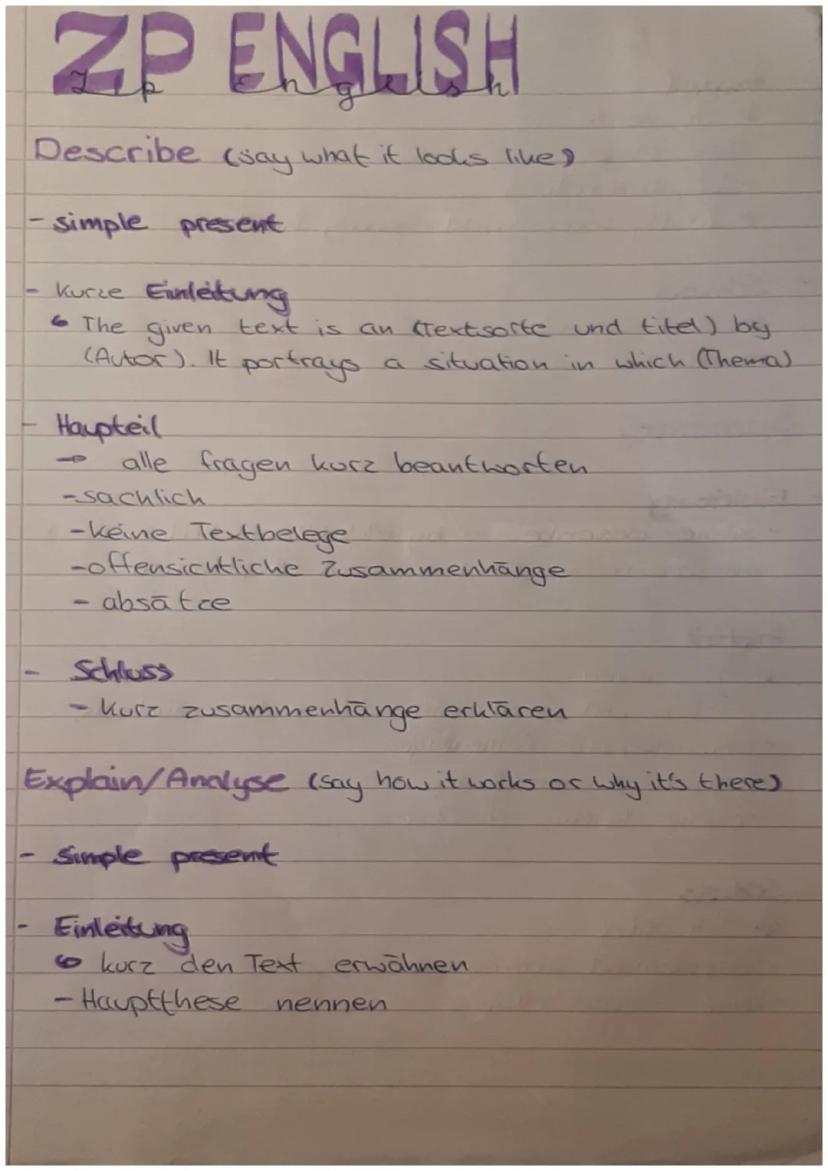 ZP ENGLISH
Zp English
Describe (say what it looks like)
- simple present
- kurze Einleitung
The given text is an (Textsorte und titel) by
(Autor). It portrays a situation in which (Thema)
- Haupteil
→ alle fragen kurz beantworten
- sachlich
- keine Textbelege
- offensichtliche Zusammenhänge
- absätze
- Schluss
- kurz zusammenhänge erklären
Explain/Analyse (say how it works or why it's there)
- simple present
- Einleitung
kurz den Text erwähnen
- Hauptthese nennen